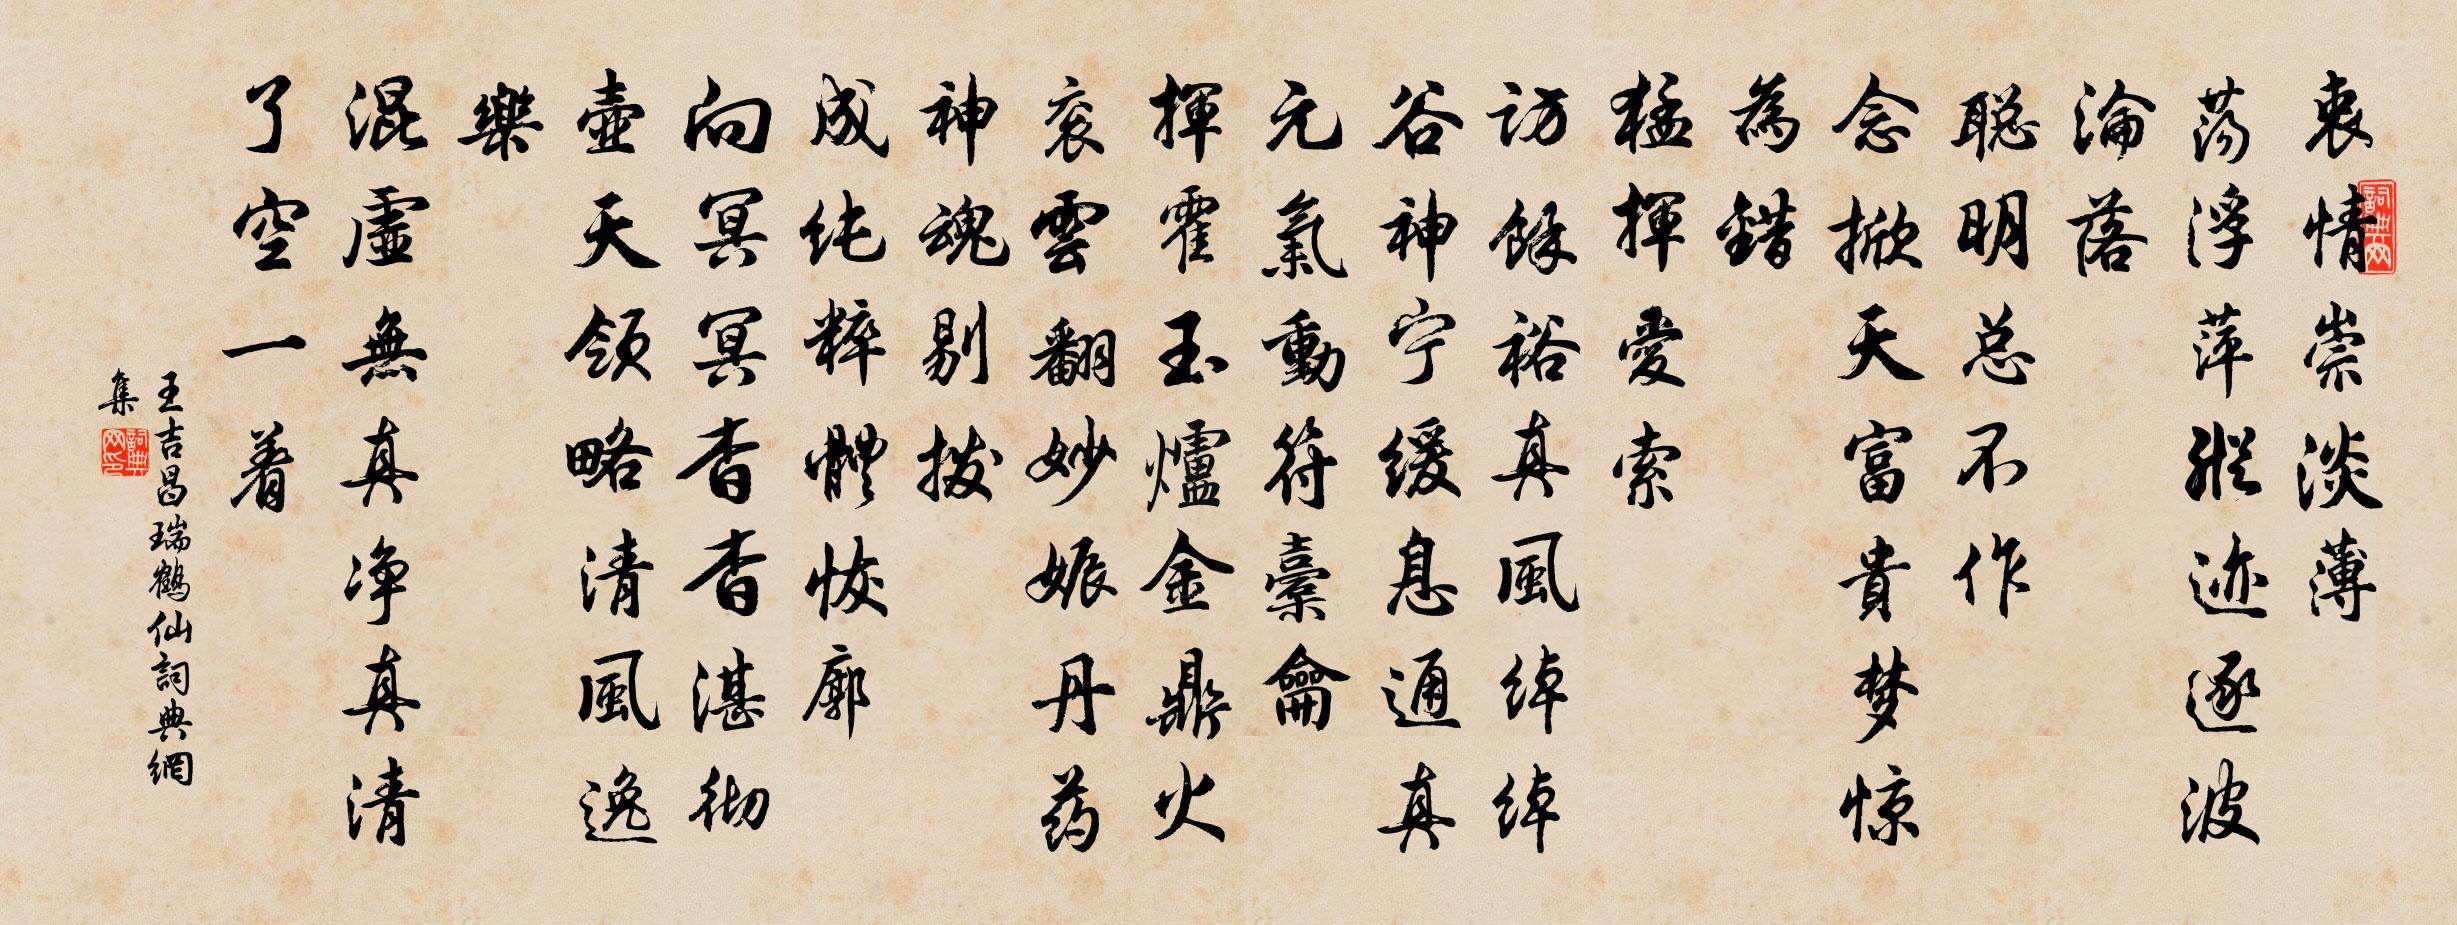 衷情崇淡薄
荡浮萍踪迹逐波
淪落
聪明总不作
念掀天富貴梦惊
為錯
猛揮愛索
访餘裕真風绰绰
谷神宁缓息通真
元氣動符橐龠
揮霍玉爐金鼎火
衮雲翻妙娠丹药
神魂剔拨
成纯粹體恢廓
向冥冥杳杳湛彻
壶天领略清風逸
樂
混虚無真净真清
了空一着
王吉昌瑞鶴仙詞典網
集
詞典网
詞典网印